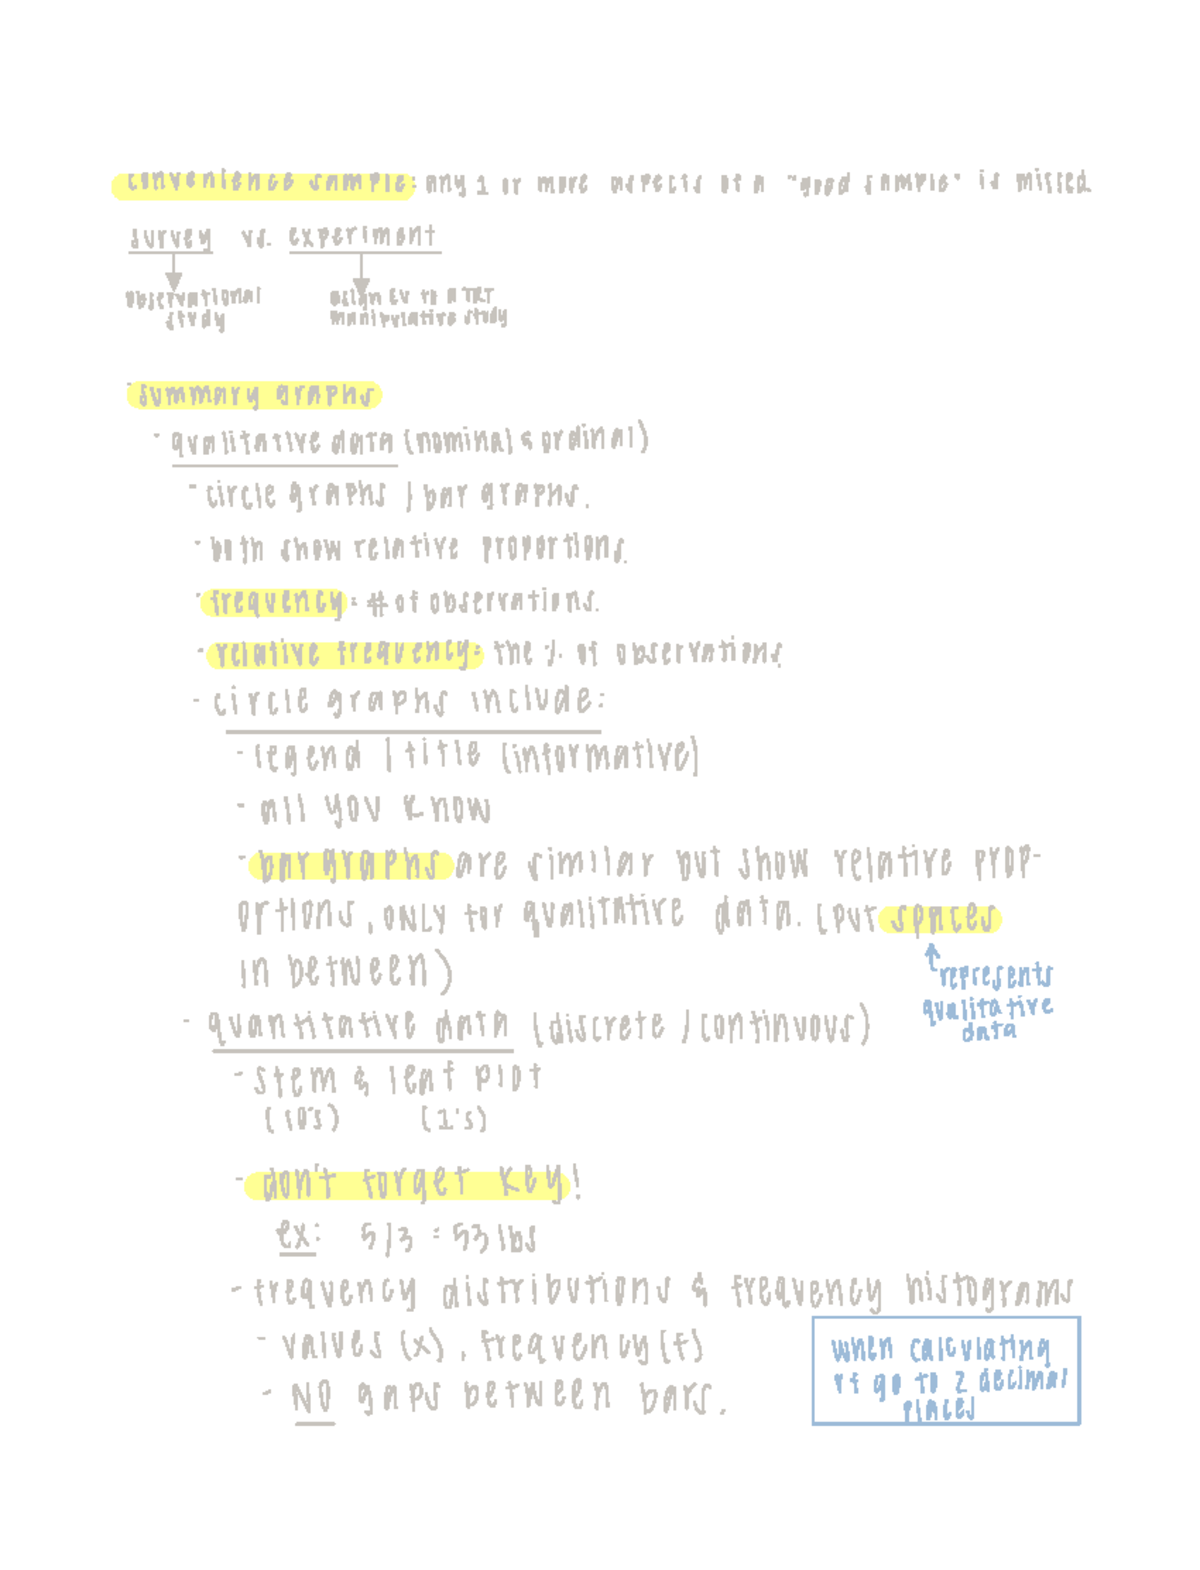 convenience sample: any 1 or more aspects of a "good sample" is missed.
survey vs. experiment
observational study
assign EV to a TRT
manipulative study
- summary graphs
- qualitative data (nominal & ordinal)
- circle graphs / bar graphs.
- both show relative proportions.
- frequency: # of observations.
- relative frequency: the % of observations.
- circle graphs include:
- legend / title (informative)
- all you know
- bar graphs are similar but show relative prop-
ortions, ONLY for qualitative data. (put spaces
in between)
↑ represents
qualitative
data
- quantitative data (discrete / continuous)
- stem & leaf plot
(10's) (1's)
- don't forget key!
ex: 5/3 = 53 lbs
- frequency distributions & frequency histograms
- values (x), frequency (f)
- NO gaps between bars.
when calculating
rf go to 2 decimal
places